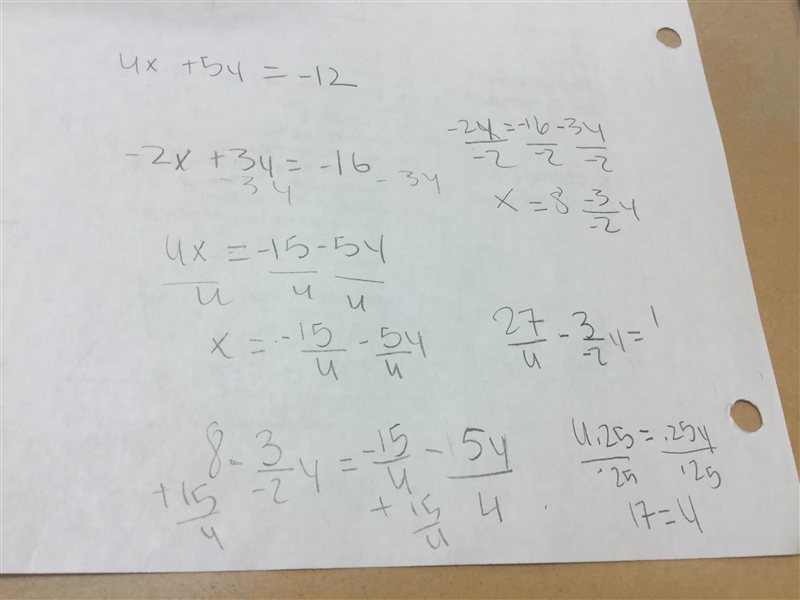 4x + 5y = -12
-2x + 3y = -16
-3y -3y
-2x/-2 = -16/-2 -3y/-2
x = 8 -3/-2 y
4x/4 = -15/4 -5y/4
x = -15/4 - 5y/4
27/4 - 3/-2 y =
8 - 3/-2 y = -15/4 - 5y/4
+15/4 +15/4
4.25/.25 = .25y/.25
17 = y